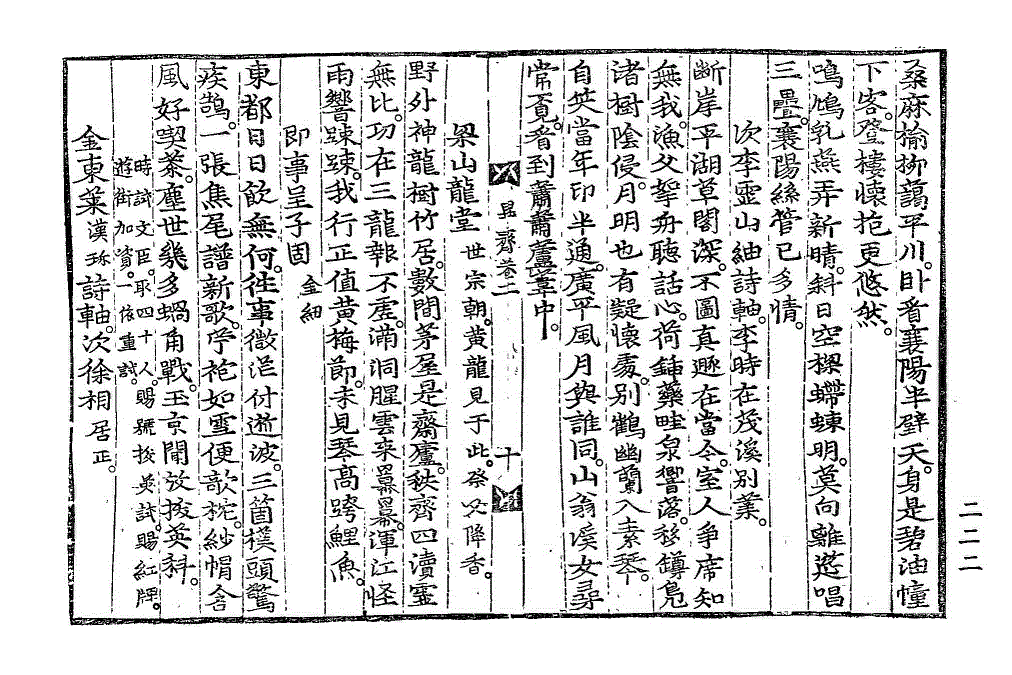 桑麻榆柳藹平川。卧看襄陽半壁天。身是碧油幢
下客。登樓懷抱更悠然。
鳴鳩乳燕弄新晴。斜日空樑螮蝀明。莫向離筵唱
三疊。襄陽絲管已多情。
次李靈山紬詩軸。李時在茂溪別業。
斷岸平湖草閣深。不圖眞趣在當今。室人爭席知
無我。漁父拏舟聽話心。荷鍤藥畦泉響落。移鐏鳧
渚樹陰侵。月明也有疑懷處。別鶴幽蘭入素琴。
自笑當年印半通。廣平風月與誰同。山翁溪女尋
常覓。看到蕭蕭蘆葦中。
昙齋卷二
十
梁山龍堂 世宗朝。黃龍見于此。祭必降香。
野外神龍樹竹居。數間茅屋是齋廬。秩齊四瀆靈
無比。功在三龍報不虛。滿洞腥雲來羃羃。渾江怪
雨響踈踈。我行正値黃梅節。未見琴高跨鯉魚。
卽事呈子固 金紐
東都日日飮無何。往事微茫付逝波。三箇樸頭驚
疾鵲。一張焦尾譜新歌。苧袍如雪便欹枕。紗帽含
風好喫茶。塵世幾多蝸角戰。玉京閙放拔英科。
時試文臣。取四十人。賜號拔英試。賜紅牌。
遊街加資。一依重試。
金東萊 漢 琢 詩軸。次徐相 居正。
二二二